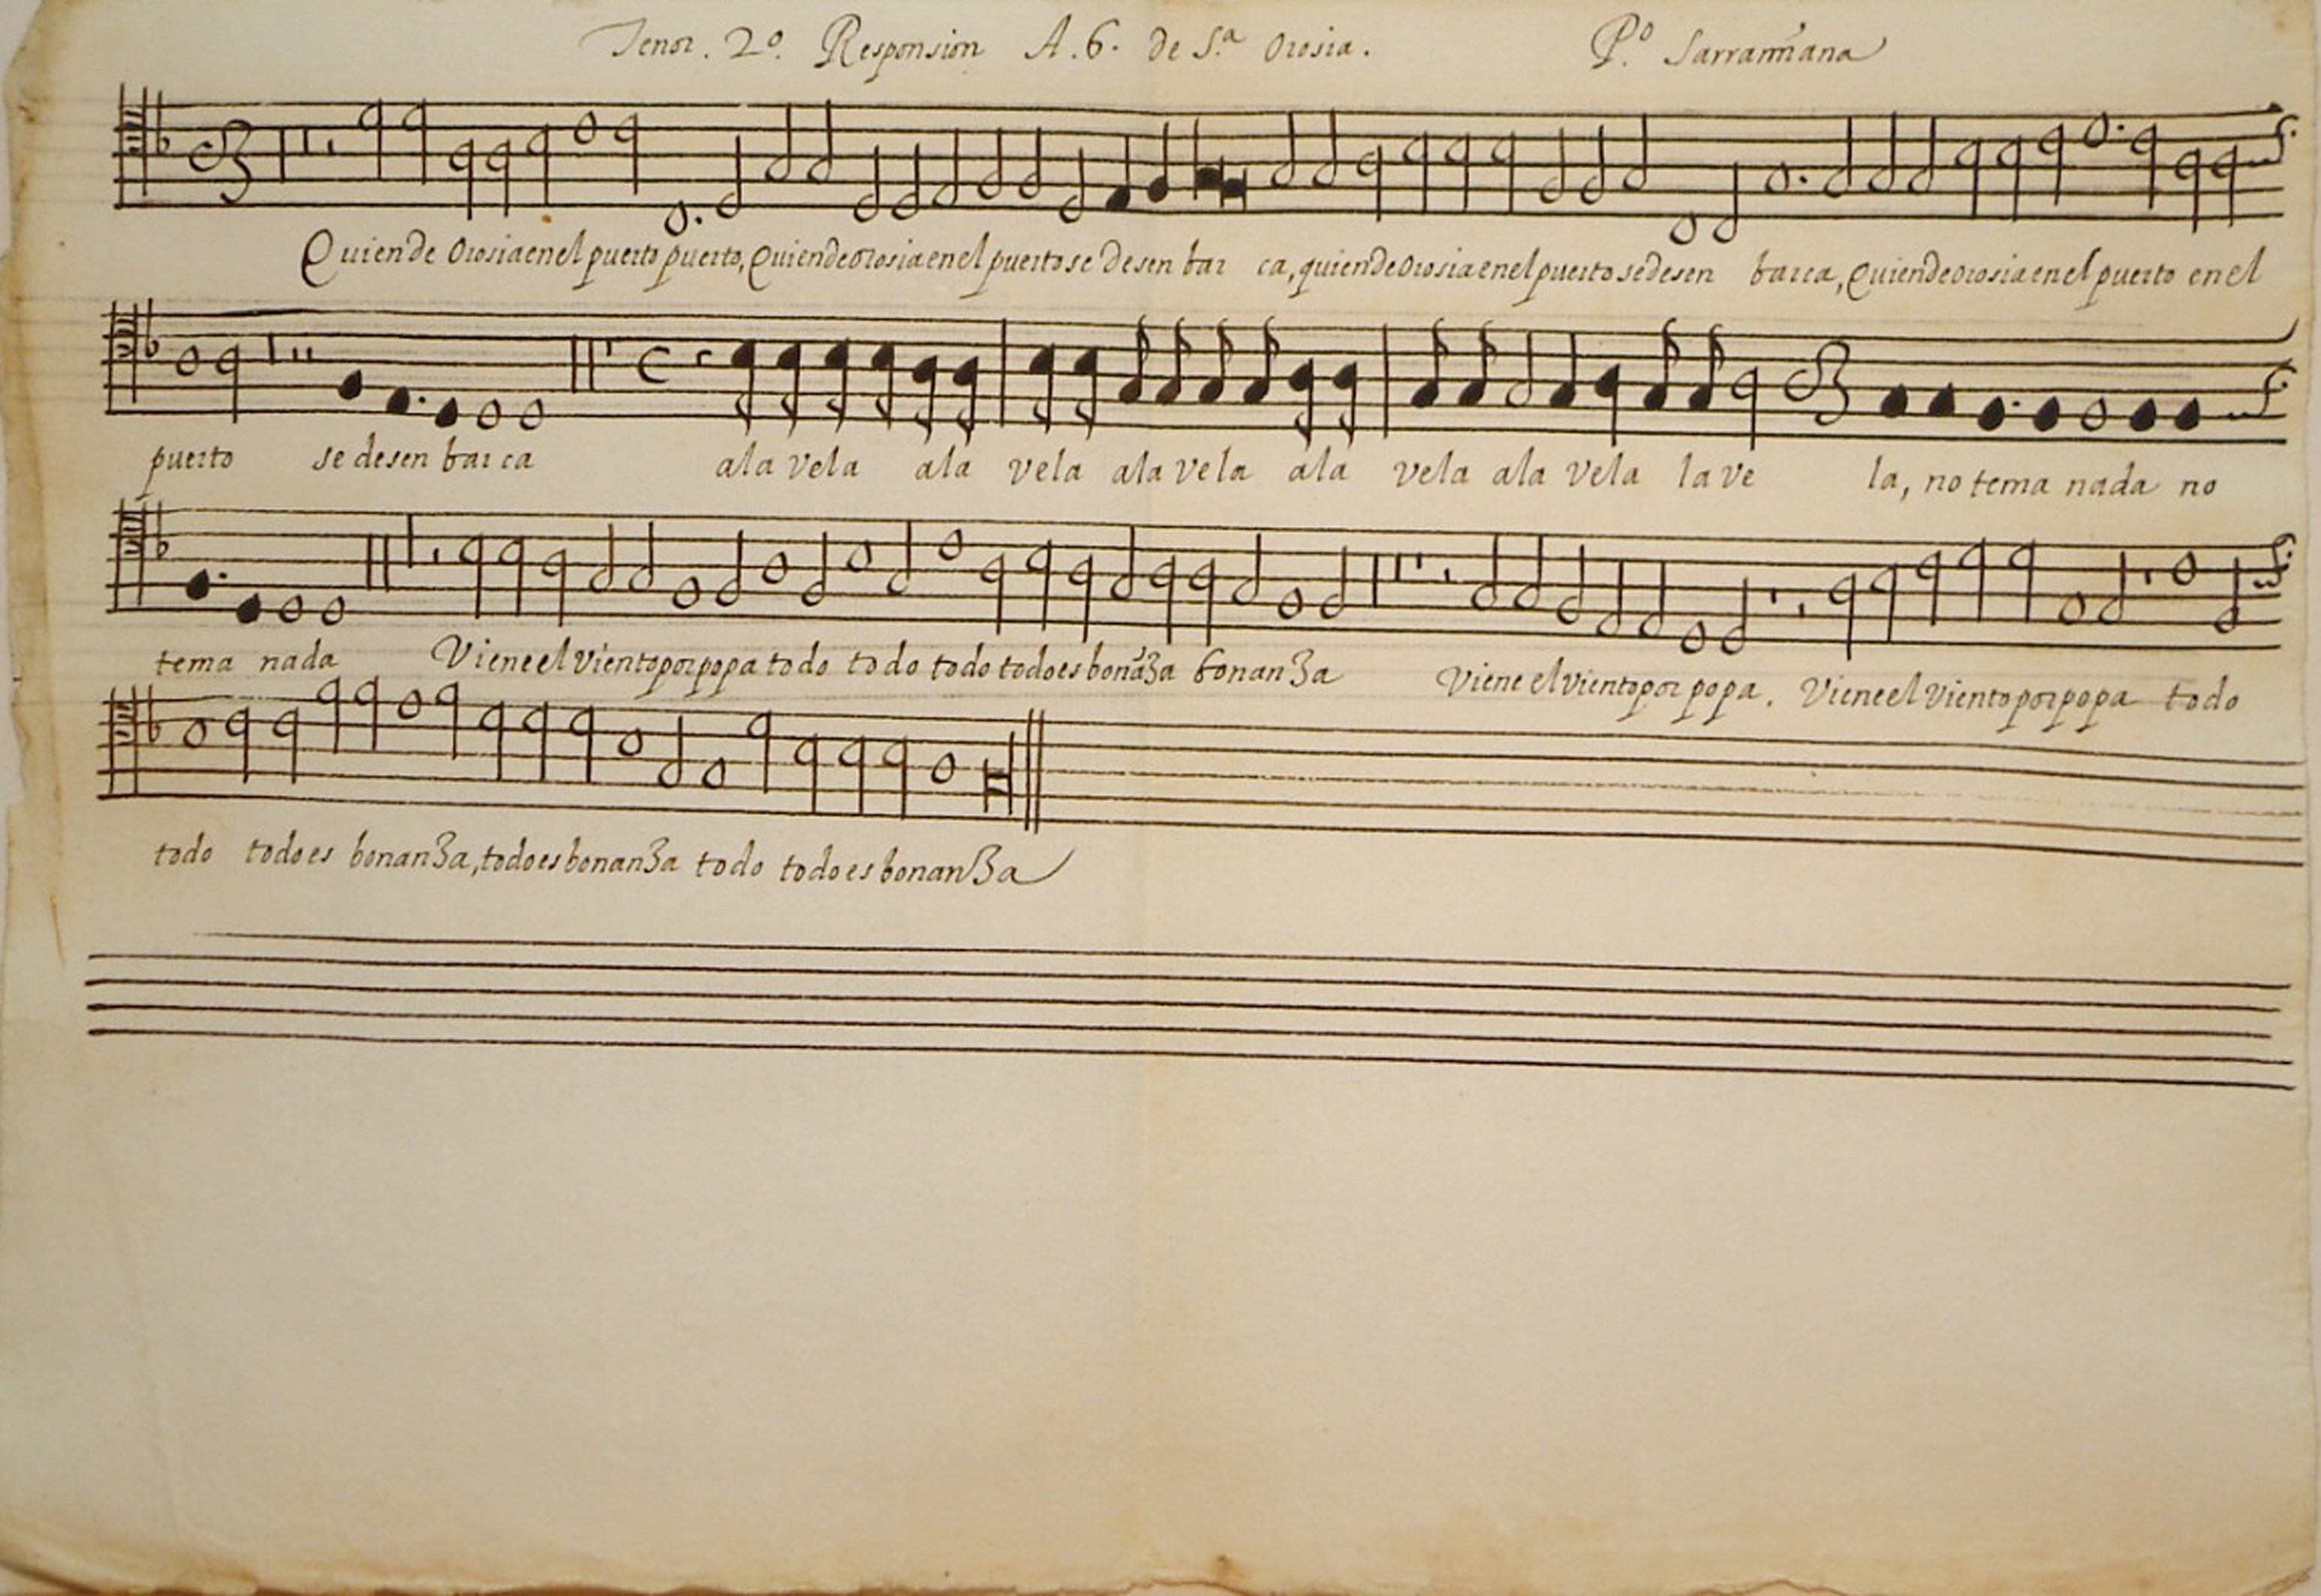 Tenor. 2º. Responsion A. 6. de S.ª Orosia. Pº.
Quien de Orosia en el puerto puerto, Quien de orosia en el puerto se desen bar ca, quien de Orosia en el puerto se desen barca, Quien de orosia en el puerto en el
puerto se desen bar ca ala vela ala vela ala vela ala vela ala vela la ve la, no tema nada no
tema nada Viene el viento por popa todo todo todo todo es bonãza bonanza Viene el viento por popa. Viene el viento por popa todo
todo todo es bonanza, todo es bonanza todo todo es bonanza